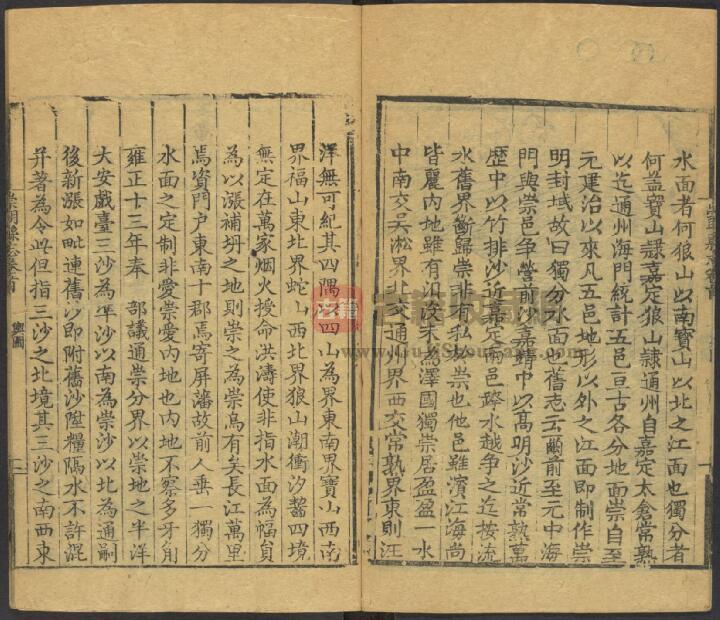 水面者何狼山以南寶山以北之江面也獨分者
何葢寶山隸嘉定狼山隸通州自嘉定太倉常熟
以迄通州海門統計五邑亘古各分地面崇自至
元建治以來凡五邑地形以外之江面即制作崇
明封域故曰獨分水面也舊志云爾前至元中海
門與崇邑爭營前沙嘉靖中以高明沙近常熟萬
歷中以竹排沙近嘉定兩邑跨水越爭之迄按流
水舊界斷歸崇非有私於崇也他邑雖濱江海尚
皆麗內地雖有沿改未為澤國獨崇居盈盈 水
中南交吳淞界北交通州界西交常熟界東則汪
洋無可紀其四隅以四山為界東南界寶山西南
界福山東北界蛇山西北界狼山潮衝汐齧四境
無定在萬家烟火授命洪濤使非指水面為幅員
為以漲補坍之地則崇之為崇烏有矣長江萬里
焉資門户東南十郡焉寄屏藩故前人垂一獨分
水面之定制非愛崇愛內地也內地不察多牙角
雍正十三年奉 部議通崇分界以崇地之半洋
大安戲臺三沙為準沙以南為崇沙以北為通嗣
後新漲如毗連舊沙即附舊沙陞糧隔水不許混
并著為令此但指三沙之北境其三沙之南西東
輿圖